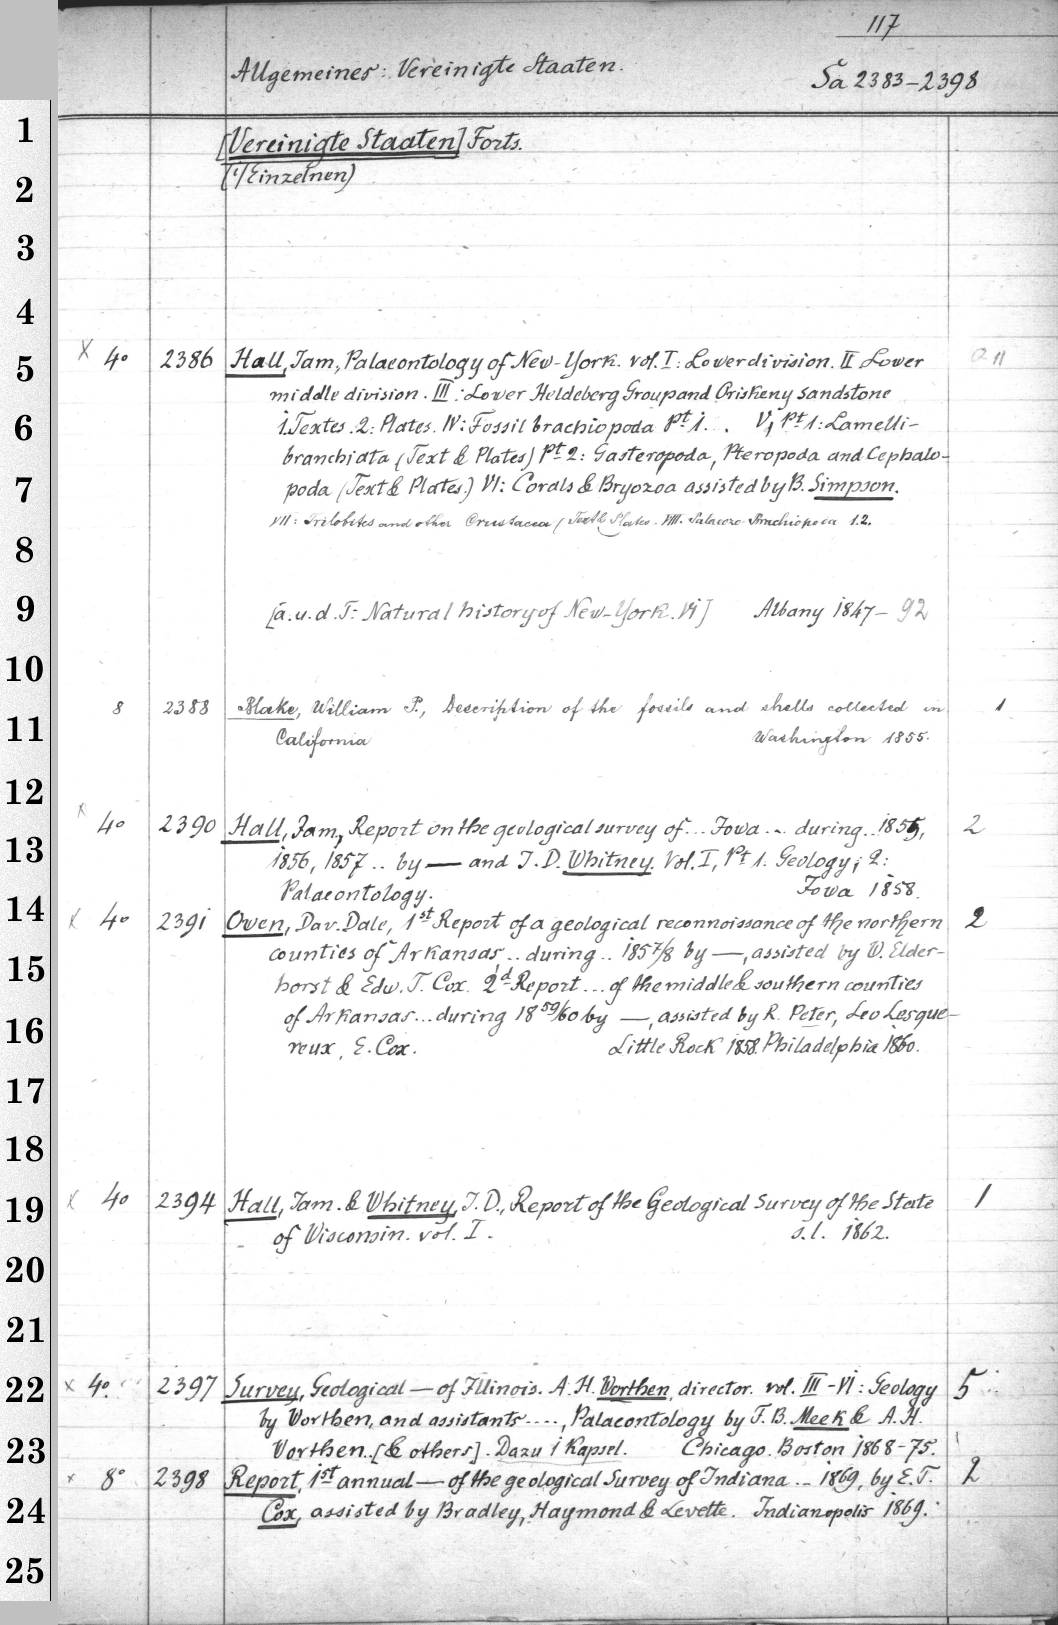 117
Allgemeines: Vereinigte Staaten. Sa 2383-2398
1
[Vereinigte Staaten] Forts.
2
(Einzelnen)
3
4
5
X 4° 2386 Hall, Jam, Palaeontology of New-York. vol. I: Lower division. II Lower 11
middle division. III: Lower Heldeberg Group and Oriskeny sandstone
6
1. Textes. 2: Plates. IV: Fossil brachiopoda Pt 1... V, Pt 1: Lamelli-
branchiata (Text & Plates) Pt 2: Gasteropoda, Pteropoda and Cephalo-
7
poda (Text & Plates.) VI: Corals & Bryozoa assisted by B. Simpson.
VII: Trilobites and other Crustacea (Text & Plates. VIII. Palaeozo. Brachiopoda 1.2.
8
9
[a.u.d.T: Natural history of New-York. VI] Albany 1847-92
10
8 2388 Blake, William P., Description of the fossils and shells collected in 1
11
California Washington 1855.
12
x 4° 2390 Hall, Jam, Report on the geological survey of... Iowa... during.. 1855, 2
13
1856, 1857.. by — and J. D. Whitney. Vol. I, Pt 1. Geology; 2:
Palaeontology. Iowa 1858.
14
x 4° 2391 Owen, Dav. Dale, 1st Report of a geological reconnoissance of the northern 2
counties of Arkansas.. during.. 1857/8 by —, assisted by W. Elder-
15
horst & Edw. T. Cox. 2d Report... of the middle & southern counties
16
of Arkansas... during 1859/60 by —, assisted by R. Peter, Leo Lesque-
reux, E. Cox. Little Rock 1858. Philadelphia 1860.
17
18
19
x 4° 2394 Hall, Jam. & Whitney, J. D., Report of the Geological Survey of the State 1
of Wisconsin. vol. I. s.l. 1862.
20
21
22
x 4° 2397 Survey, Geological — of Illinois. A. H. Worthen, director. vol. III-VI: Geology 5
by Worthen, and assistants ...., Palaeontology by F. B. Meek & A. H.
23
Worthen. [& others]. Dazu 1 Kapsel. Chicago. Boston 1868-75.
x 8° 2398 Report, 1st annual — of the geological Survey of Indiana... 1869, by E. T. 2
24
Cox, assisted by Bradley, Haymond & Levette. Indianapolis 1869.
25